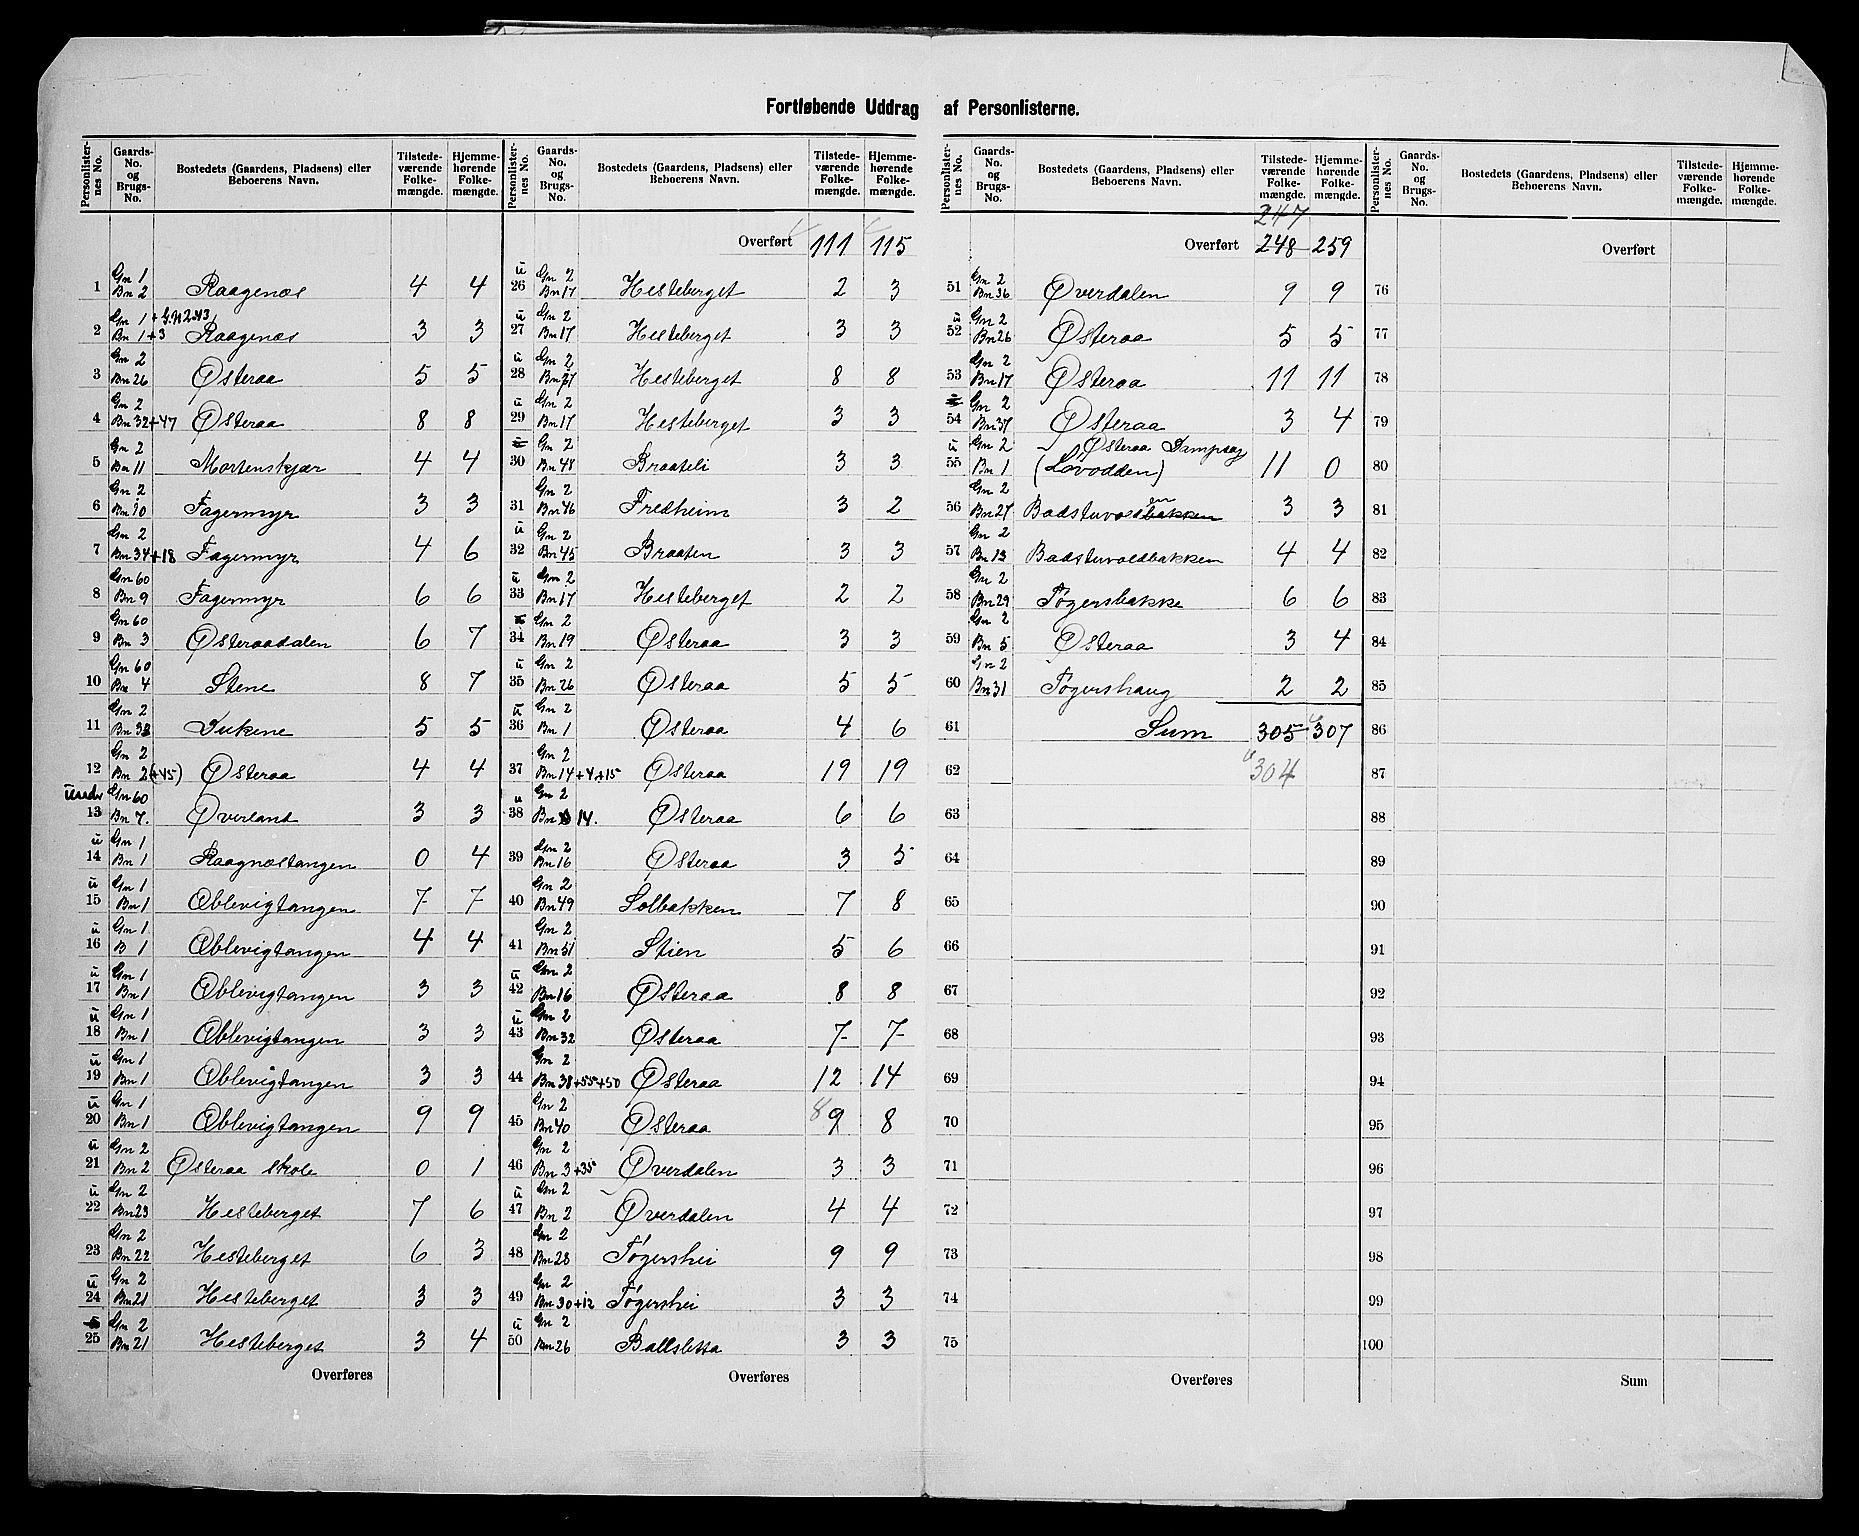 Fortløbende Uddrag af Personlisterne.
Personlister-nes No. | Gaards-No. og Brugs-No. | Bostedets (Gaardens, Pladsens) eller Beboerens Navn. | Tilstede-værende Folke-mængde. | Hjemme-hørende Folke-mængde.
1 | Gn 1 Bn 2 | Raagenæs | 4 | 4
2 | Gn 1 + G.N 2 Bn 1+3 | Raagenæs | 3 | 3
3 | Gn 2 Bn 26 | Østeraa | 5 | 5
4 | Gn 2 Bn 32+47 | Østeraa | 8 | 8
5 | Gn 2 Bn 11 | Mortenskjær | 4 | 4
6 | Gn 2 Bn 10 | Fagermyr | 3 | 3
7 | Gn 2 Bn 34+18 | Fagermyr | 4 | 6
8 | Gn 60 Bn 9 | Fagermyr | 6 | 6
9 | Gn 60 Bn 3 | Østeraadalen | 6 | 7
10 | Gn 60 Bn 4 | Stene | 8 | 7
11 | Gn 2 Bn 33 | | 5 | 5
12 | Gn 2 Bn 2(+45) | Østeraa | 4 | 4
under 13 | Gn 60 Bn 7. | Øverland | 3 | 3
u 14 | Gn 1 Bn 1 | Raagnæstangen | 0 | 4
u 15 | Gn 1 Bn 1 | Oblevigtangen | 7 | 7
u 16 | Gn 1 B 1 | Oblevigtangen | 4 | 4
u 17 | Gn 1 Bn 1 | Oblevigtangen | 3 | 3
u 18 | Gn 1 Bn 1 | Oblevigtangen | 3 | 3
u 19 | Gn 1 Bn 1 | Oblevigtangen | 3 | 3
u 20 | Gn 1 Bn 1 | Oblevigtangen | 9 | 9
u 21 | Gn 2 Bn 2 | Østeraa skole | 0 | 1
u 22 | Gn 2 Bn 23 | Hesteberget | 7 | 6
23 | Gn 2 Bn 22 | Hesteberget | 6 | 3
u 24 | Gn 2 Bn 21 | Hesteberget | 3 | 3
25 | Gn 2 Bn 21 | Hesteberget | 3 | 4
Overføres
Personlister-nes No. | Gaards-No. og Brugs-No. | Bostedets (Gaardens, Pladsens) eller Beboerens Navn. | Tilstede-værende Folke-mængde. | Hjemme-hørende Folke-mængde.
Overført | 111 | 115
u 26 | Gn 2 Bn 17 | Hesteberget | 2 | 3
u 27 | Gn 2 Bn 17 | Hesteberget | 3 | 3
u 28 | Gn 2 Bn 27 | Hesteberget | 8 | 8
u 29 | Gn 2 Bn 17 | Hesteberget | 3 | 3
u 30 | Gn 2 Bn 48 | Braateli | 3 | 3
31 | Gn 2 Bn 46 | Fredheim | 3 | 2
u 32 | Gn 2 Bn 45 | Braaten | 3 | 3
u 33 | Gn 2 Bn 17 | Hesteberget | 2 | 2
34 | Gn 2 Bn 19 | Østeraa | 3 | 3
u 35 | Gn 2 Bn 26 | Østeraa | 5 | 5
u 36 | Gn 2 Bn 1 | Østeraa | 4 | 6
37 | Gn 2 Bn 14+4+15 | Østeraa | 19 | 19
u 38 | Gn 2 Bn 14. | Østeraa | 6 | 6
39 | Gn 2 Bn 16 | Østeraa | 3 | 5
40 | Gn 2 Bn 49 | Solbakken | 7 | 8
41 | Gn 2 Bn 51 | Stien | 5 | 6
u 42 | Gn 2 Bn 16 | Østeraa | 8 | 8
u 43 | Gn 2 Bn 32 | Østeraa | 7 | 7
44 | Gn 2 Bn 38+55+50 | Østeraa | 12 | 14
45 | Gn 2 Bn 40 | Østeraa | 8 9 | 8
46 | Gn 2 Bn 3+35 | Øverdalen | 3 | 3
u 47 | Gn 2 Bn 2 | Øverdalen | 4 | 4
48 | Gn 2 Bn 28 | Tøgershei | 9 | 9
49 | Gn 2 Bn 30+12 | Tøgershei | 3 | 3
u 50 | Gn 2 Bn 26 | Ballsletta | 3 | 3
Overføres
Personlister-nes No. | Gaards-No. og Brugs-No. | Bostedets (Gaardens, Pladsens) eller Beboerens Navn. | Tilstede-værende Folke-mængde. | Hjemme-hørende Folke-mængde.
247
Overført | 248 | 259
51 | Gn 2 Bn 36 | Øverdalen | 9 | 9
u 52 | Gn 2 Bn 26 | Østeraa | 5 | 5
53 | Gn 2 Bn 17 | Østeraa | 11 | 11
u 54 | Gn 2 Bn 37 | Østeraa | 3 | 4
u 55 | Gn 2 Bn 1 | Østeraa Dampsag (Løvodden) | 11 | 0
56 | Gn 2 Bn 27 | Badstuvoldbakken en | 3 | 3
57 | Gn 2 Bn 13 | Badstuvoldbakken | 4 | 4
58 | Gn 2 Bn 29 | Tøgersbakke | 6 | 6
59 | Gn 2 Bn 5 | Østeraa | 3 | 4
60 | Gn 2 Bn 31 | Tøgershaug | 2 | 2
61 | Sum | 305 | 307
62 | 304
63
64
65
66
67
68
69
70
71
72
73
74
75
Overføres
Personlister-nes No. | Gaards-No. og Brugs-No. | Bostedets (Gaardens, Pladsens) eller Beboerens Navn. | Tilstede-værende Folke-mængde. | Hjemme-hørende Folke-mængde.
Overført
76
77
78
79
80
81
82
83
84
85
86
87
88
89
90
91
92
93
94
95
96
97
98
99
100
Sum